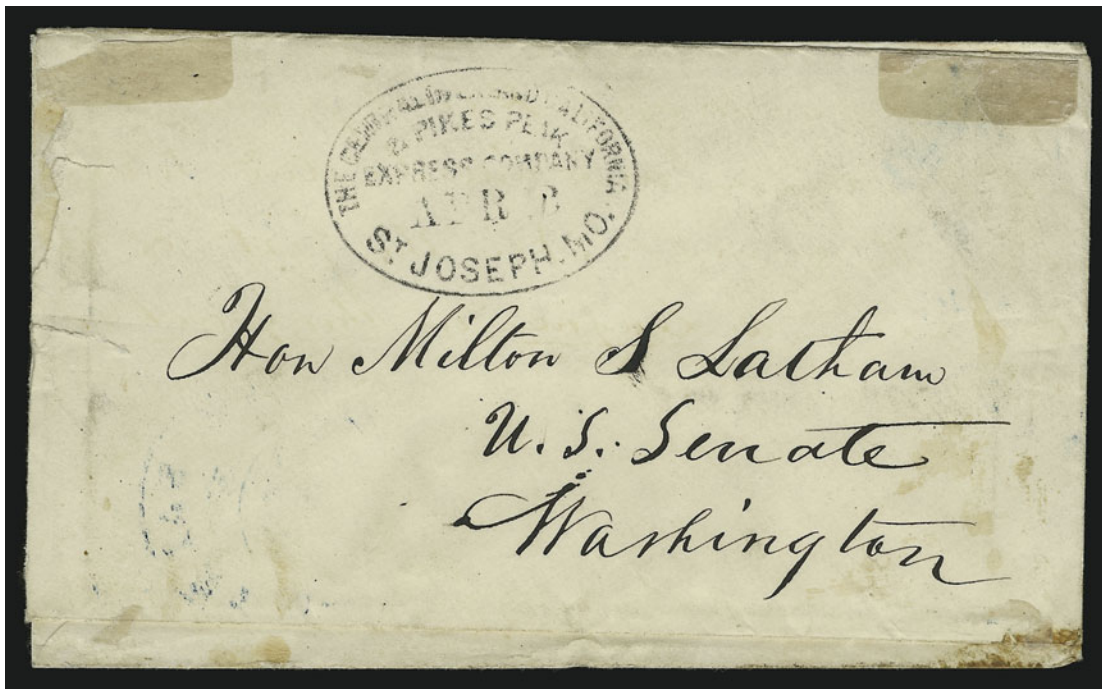 THE CENTRAL OVERLAND CALIFORNIA
& PIKES PEAK
EXPRESS COMPANY
APR 
ST JOSEPH. MO.
Hon Milton S Latham
U. S. Senate
Washington